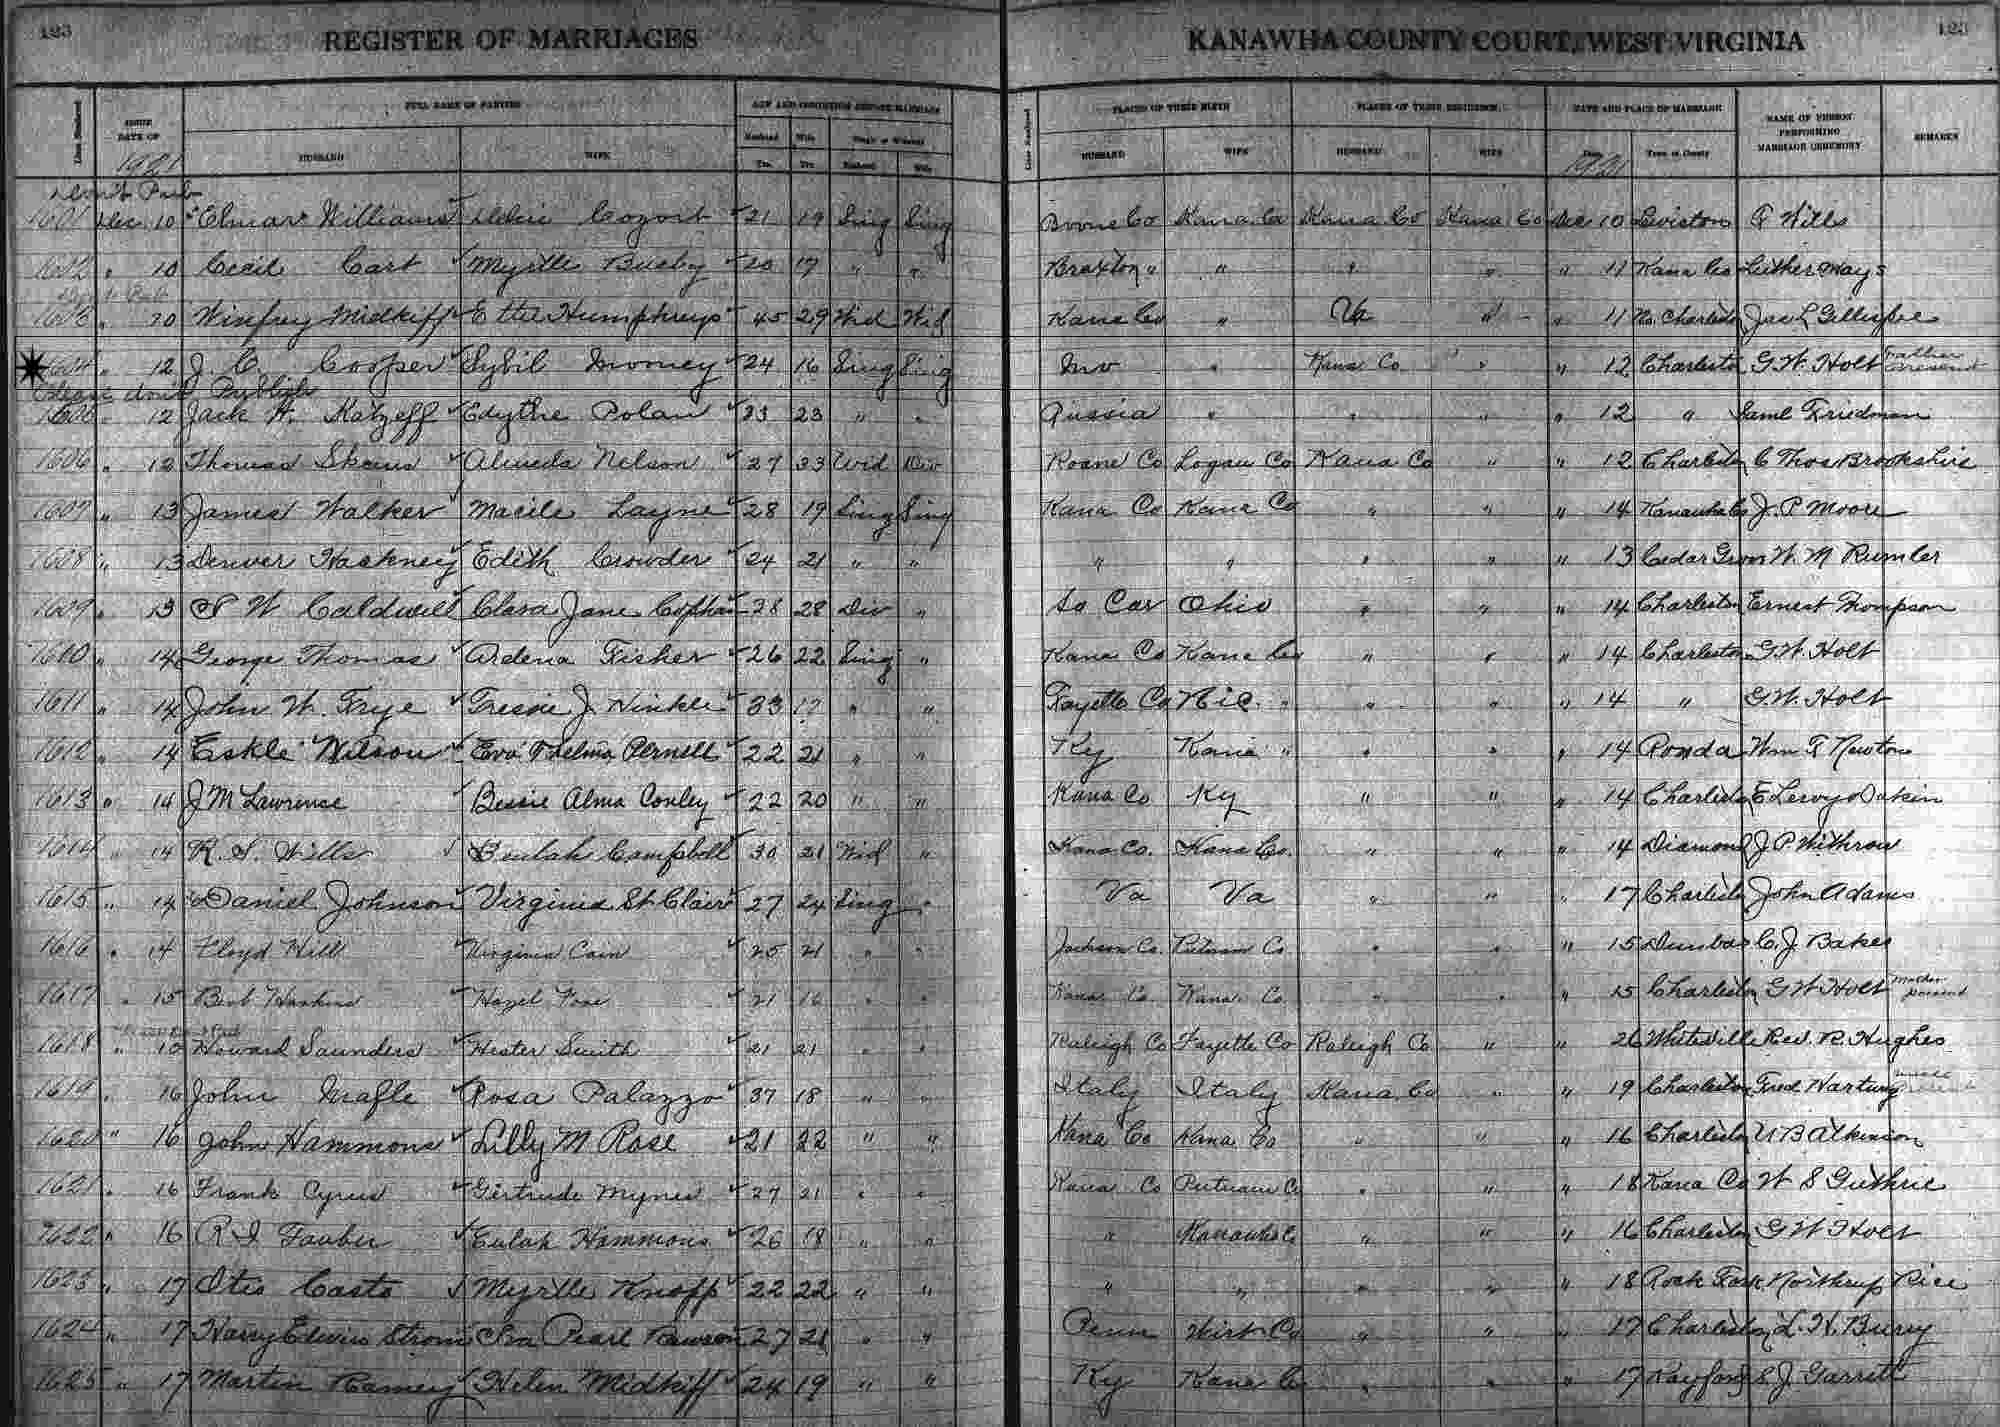 123
REGISTER OF MARRIAGES
KANAWHA COUNTY COURT, WEST VIRGINIA
123
Line Numbered
ISSUE DATE OF
1921
FULL NAME OF PARTIES
HUSBAND
WIFE
AGE AND CONDITION BEFORE MARRIAGE
Husband Yrs.
Wife Yrs
Single or Widowed
Husband
Wife
Line Numbered
PLACES OF THEIR BIRTH
HUSBAND
WIFE
PLACES OF THEIR RESIDENCE
HUSBAND
WIFE
DATE AND PLACE OF MARRIAGE
Date
1921
Town or County
NAME OF PERSON PERFORMING MARRIAGE CEREMONY
REMARKS
Don't Pub
1601 Dec 10 Elmar Williams Cozort 21 19 Sing Sing Boone Co Kana Co Kana Co Kana Co Dec 10 Leviston Wills
1602 " 10 Cecil Cart Myrtle Busby 20 17 " " Braxton " " " " " 11 Kana Co Luther Mays
Don't Pub
1603 " 10 Winfrey Midkiff Ethel Humphreys 45 29 Wid Wid Kana Co " Va " " 11 No. Charleston Jas L Gillispie
1604 " 12 J. C. Cooper Sybil Mooney 24 16 Sing Sing Mo Kana Co " " 12 Charleston G. W. Holt Father Present
Please don't Publish
1605 " 12 Jack H. Katzeff Edythe Polan 23 23 " " Russia " " " " 12 " Saml Friedman
1606 " 12 Thomas Skeens Almeda Nelson 27 33 Wid Div Roane Co Logan Co Kana Co " " 12 Charleston C Thos Brookshire
1607 " 13 James Walker Macile Layne 28 19 Sing Sing Kana Co Kana Co " " " 14 Kanawha Co J. P. Moore
1608 " 13 Denver Hackney Edith Crowder 24 21 " " " " " " " 13 Cedar Grove W. M Rumler
1609 " 13 W Caldwell Clara Jane 28 Div " So Car Ohio " " " 14 Charleston Ernest Thompson
1610 " 14 George Thomas Ardena Fisher 26 22 Sing " Kana Co Kana Co " " " 14 Charleston G. W. Holt
1611 " 14 John W. Frye Tressie J. Hinkle 33 17 " " Fayette Co Nic. " " " " 14 " G. W. Holt
1612 " 14 Eskle Wilson Eva Thelma Pernell 22 21 " " Ky Kana " " " " 14 Ronda Wm F Newton
1613 " 14 J M Lawrence Bessie Alma Conley 22 20 " " Kana Co Ky " " " 14 Charleston E Leroy Dakin
1614 " 14 R. S. Wills Beulah Campbell 30 21 Wid " Kana Co. Kana Co. " " " 14 Diamond J. P. Withrow
1615 " 14 Daniel Johnson Virginia St. Clair 27 24 Sing " Va Va " " " 17 Charleston John Adams
1616 " 14 Floyd Hill Virginia Cain 25 21 " " Jackson Co. Putnam Co " " " 15 Dunbar C. J. Baker
1617 " 15 Bert Hankins Hazel 21 16 " " Kana Co Kana Co " " " 15 Charleston G W Holt Mother present
1618 " 10 Howard Saunders Hester Smith 21 21 " " Raleigh Co Fayette Co Raleigh Co " " 26 Whitesville Rev. R. Hughes
1619 " 16 John Mafle Rosa Palazzo 37 18 " " Italy Italy Kana Co " " 19 Charleston Fred Hartung
1620 " 16 John Hammons Lilly M Rose 21 22 " " Kana Co Kana Co " " " 16 Charleston U B Atkinson
1621 " 16 Frank Cyrus Gertrude Mynes 27 21 " " Kana Co Putnam Co " " " 18 Kana Co W S Guthrie
1622 " 16 R I Fauber Eulah Hammons 26 18 " " " Kanawha Co " " " 16 Charleston G W Holt
1623 " 17 Otis Casto Myrtle Knopp 22 22 " " " " " " " 18 Rock Fork Northrup Rice
1624 " 17 Harry Edwin Strom Iva Pearl Rawson 27 21 " " Penn Wirt Co " " " 17 Charleston L. H. Burry
1625 " 17 Martin Ramey Helen Midkiff 24 19 " " Ky Kana Co " " " 17 Kayford S. J. Garrett